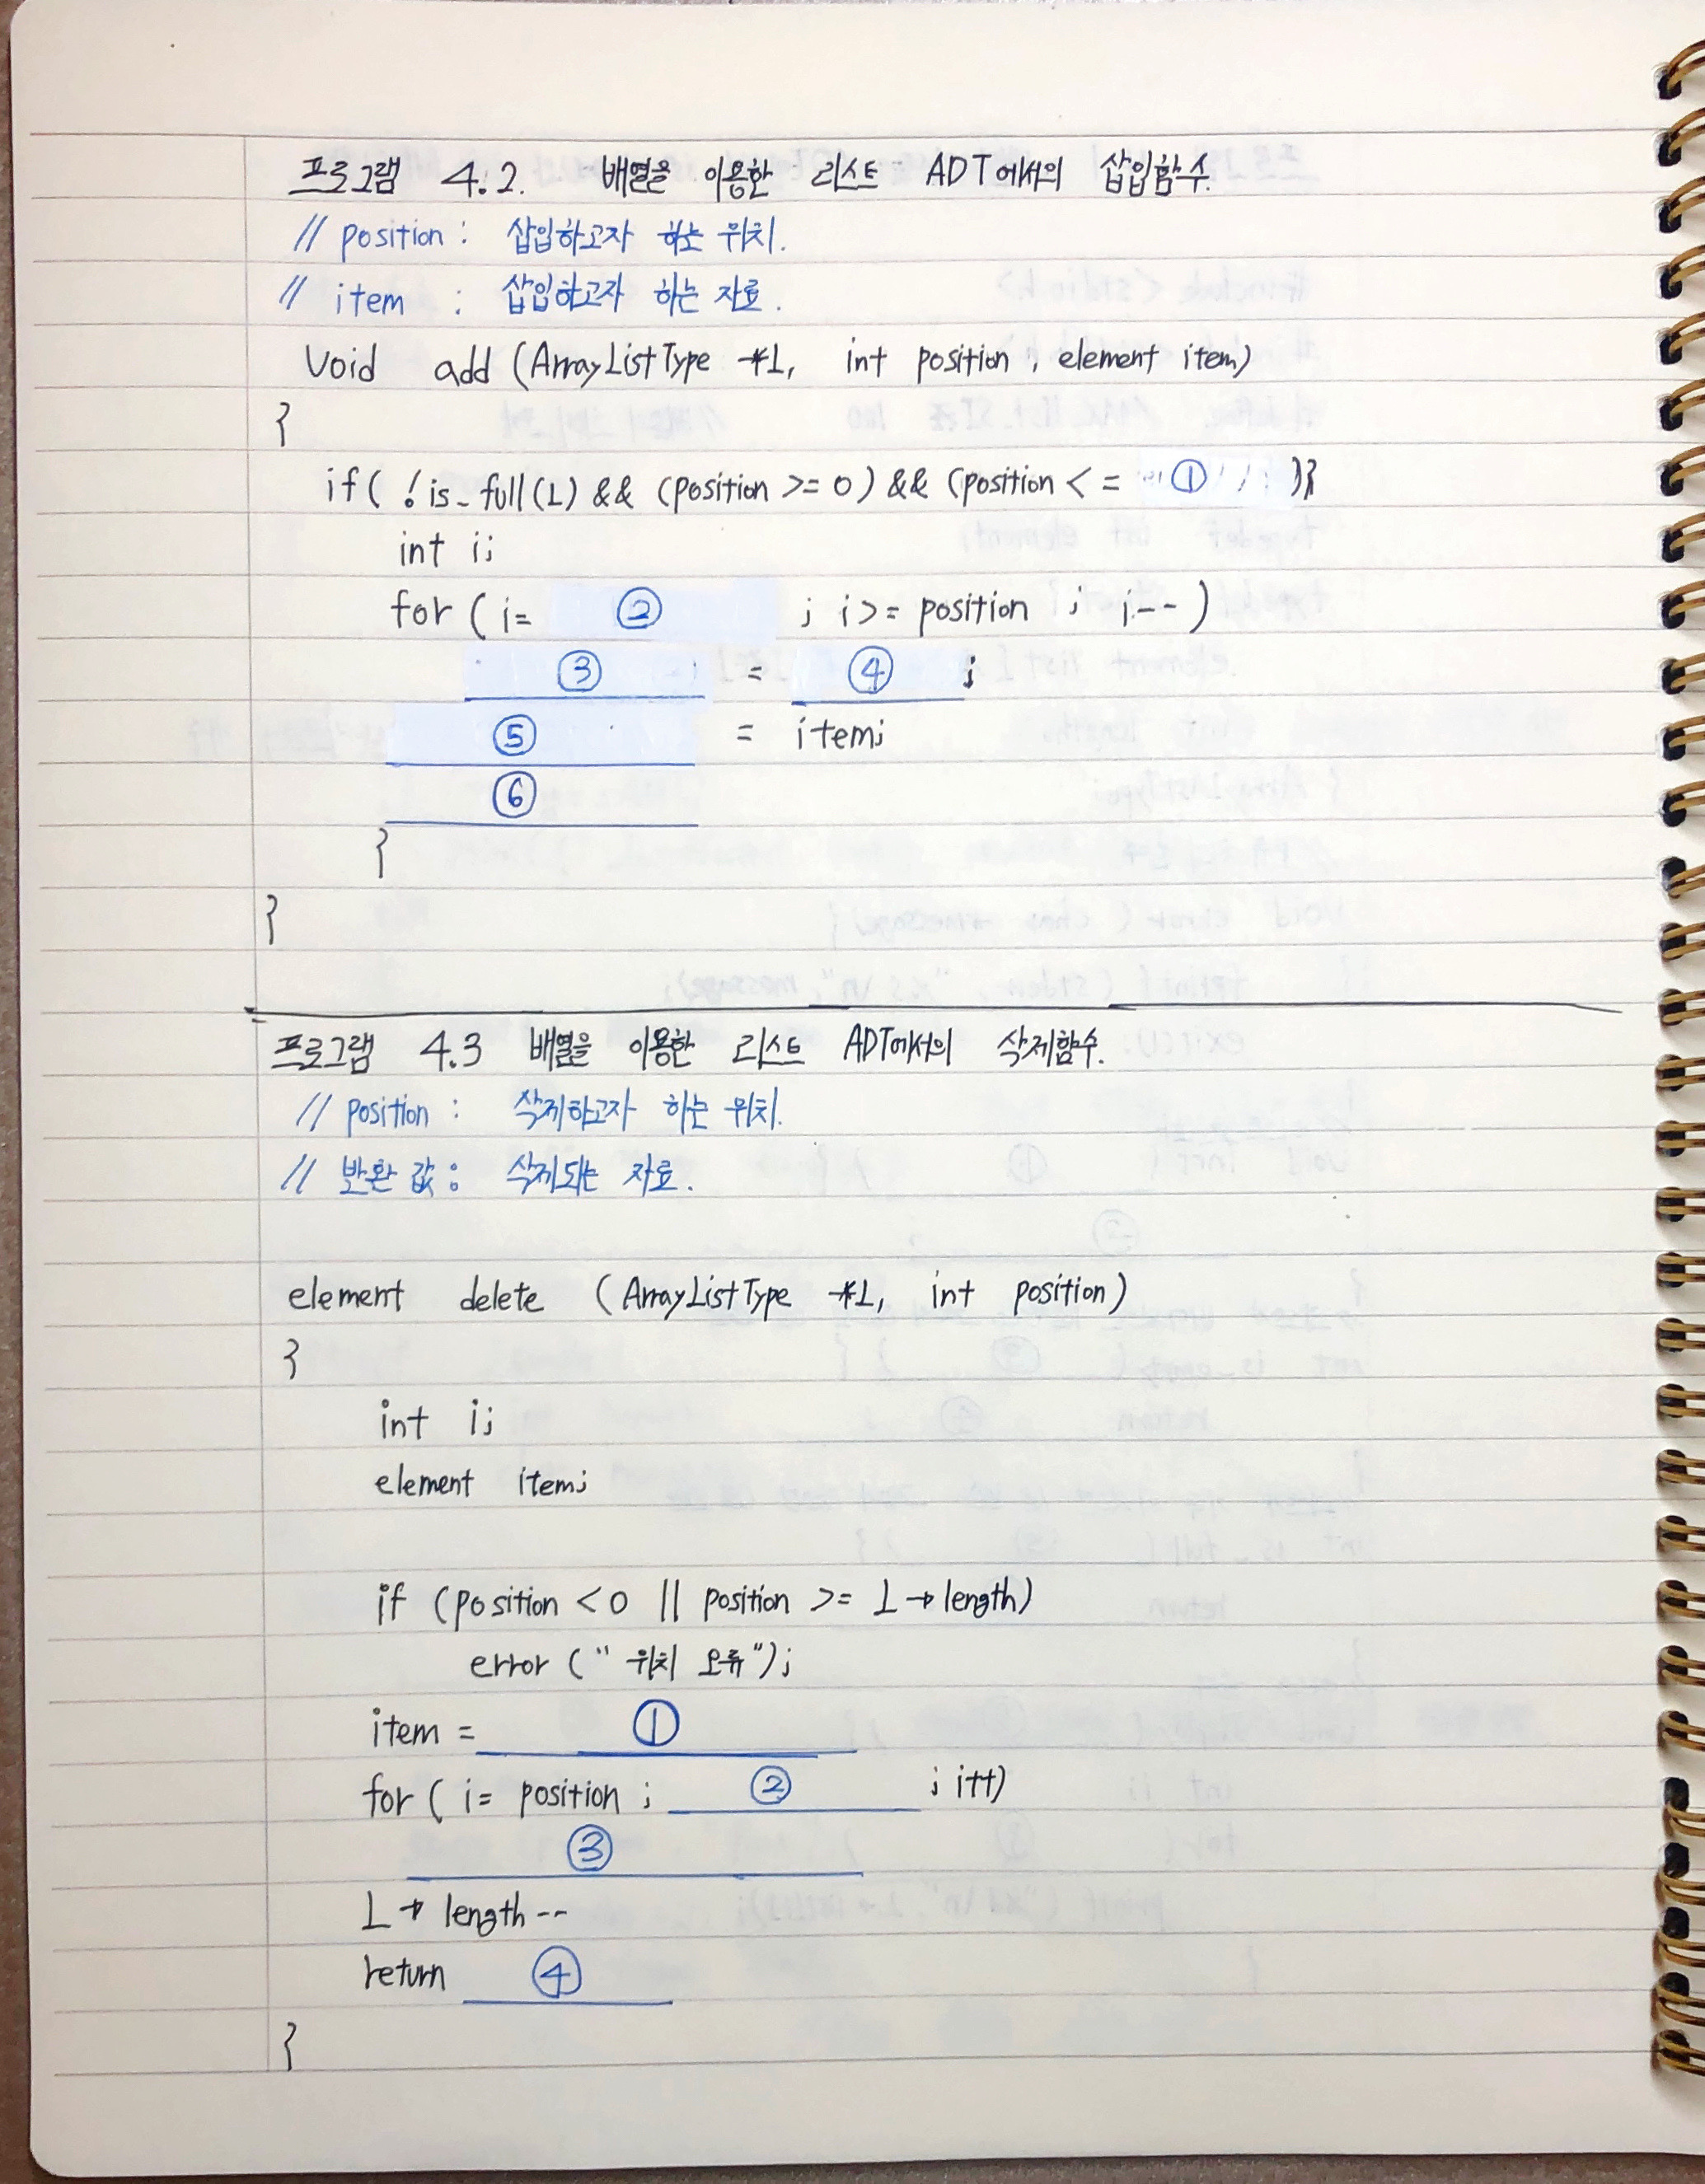 프로그램 4.2. 배열을 이용한 리스트 ADT에서의 삽입함수.
// position : 삽입하고자 하는 위치.
// item : 삽입하고자 하는 자료.
Void add (ArrayListType *L, int position, element item)
{
if( !is_full(L) && (position >= 0) && (position <= ① )){
int i;
for ( i= ② ; i>= position ; i-- )
③ = ④ ;
⑤ = item;
⑥
}
}
프로그램 4.3 배열을 이용한 리스트 ADT에서의 삭제함수.
// position : 삭제하고자 하는 위치.
// 반환 값 : 삭제되는 자료.
element delete (ArrayListType *L, int position)
{
int i;
element item;
if (position <0 || position >= L→length)
error (" 위치 오류");
item = ①
for ( i= position ; ② ; i++)
③
L→ length --
return ④
}